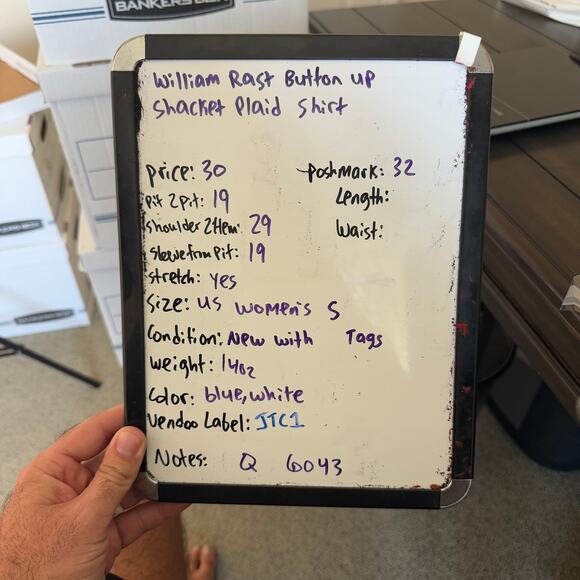 BANKERS BOX
William Rast Button up
Shacket Plaid Shirt
price: 30
poshmark: 32
Pit 2 Pit: 19
Length:
Shoulder 2 Hem: 29
Waist:
Sleeve from Pit: 19
stretch: yes
Size: US Women's S
Condition: New with Tags
Weight: 14oz
Color: blue, white
Vendoo Label: JTC1
Notes: Q 6043